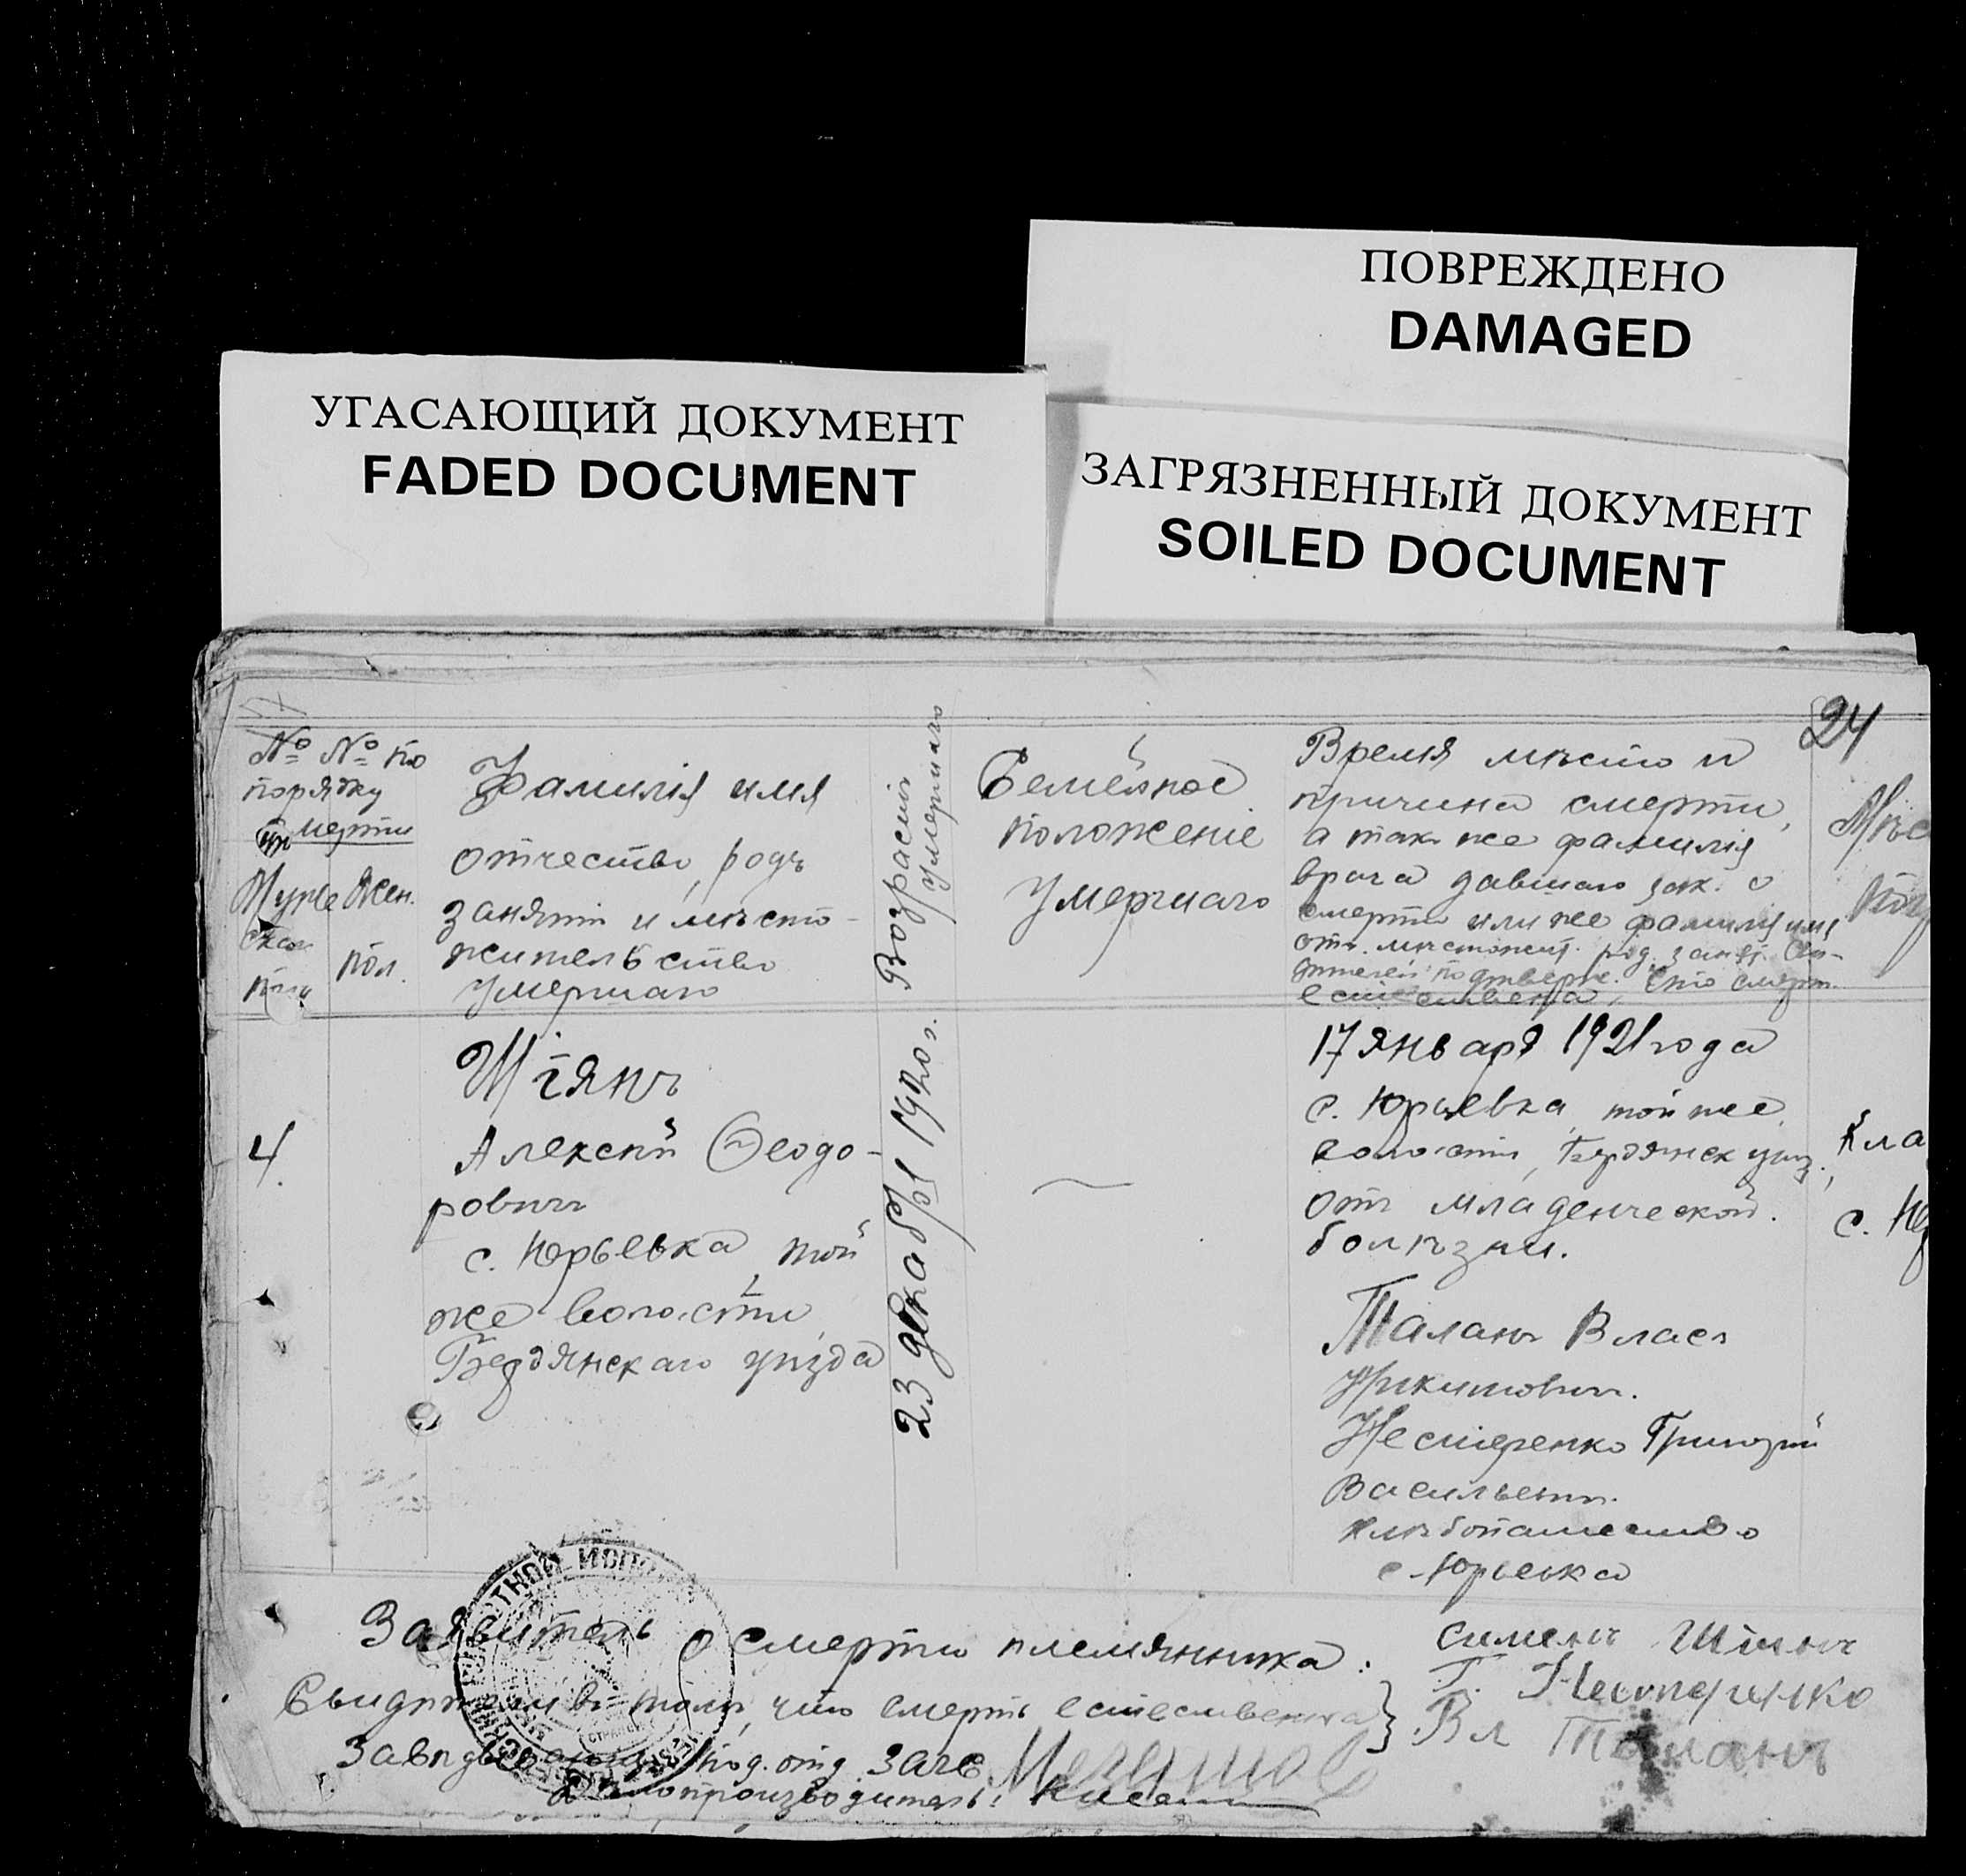 ПОВРЕЖДЕНО
DAMAGED
УГАСАЮЩИЙ ДОКУМЕНТ
FADED DOCUMENT
ЗАГРЯЗНЕННЫЙ ДОКУМЕНТ
SOILED DOCUMENT
24
№ № по
порядку
смерти
Муже
ская
пола
Жен.
пол.
Фамилія имя
отчество, родъ
занятій и мѣсто-
жительство
умершаго
Возрастъ
умершаго
Семейное
положеніе
умершаго
Время мѣсто и
причина смерти,
а так же фамилія
врача давшаго зак. о
смерти или же фамилія имя
отч. мѣстожит. род. занят. сви-
дѣтелей подтверж. что смерт.
естественна
Мѣс
пог
4.
Шіянъ
Алексѣй Ѳеодо-
ровичъ
с. Юрьевка, той
же волости,
Бердянскаго уѣзда
23 декабря 1920 г.
—
17 января 1921 года
с. Юрьевка, той же
волости, Бердянск уѣз.,
отъ младенческой
болѣзни.
Таланъ Власъ
Нестеренко Григорій
Васильевич.
хлѣбопашество
с. Юрьевка
Кла
с. Юр
Заявитель о смерти племянника:
Сименъ Шіянъ
Свидѣтели въ томъ, что смерть естественна}
Г. Нестеренко
Вл Таланъ
Завѣдывающій под. отд. Загс
Дѣлопроизводитель: